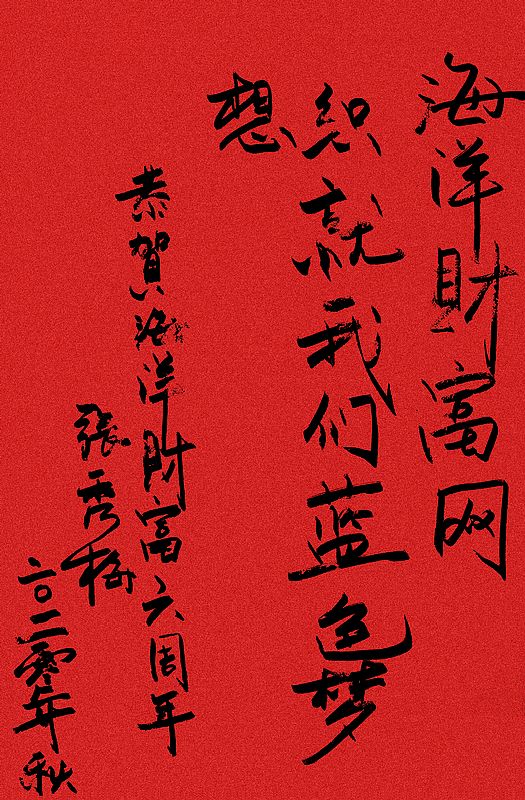 海洋財富网
织就我们蓝色梦
想
恭賀海洋財富六周年
張秀梅
二〇二零年秋